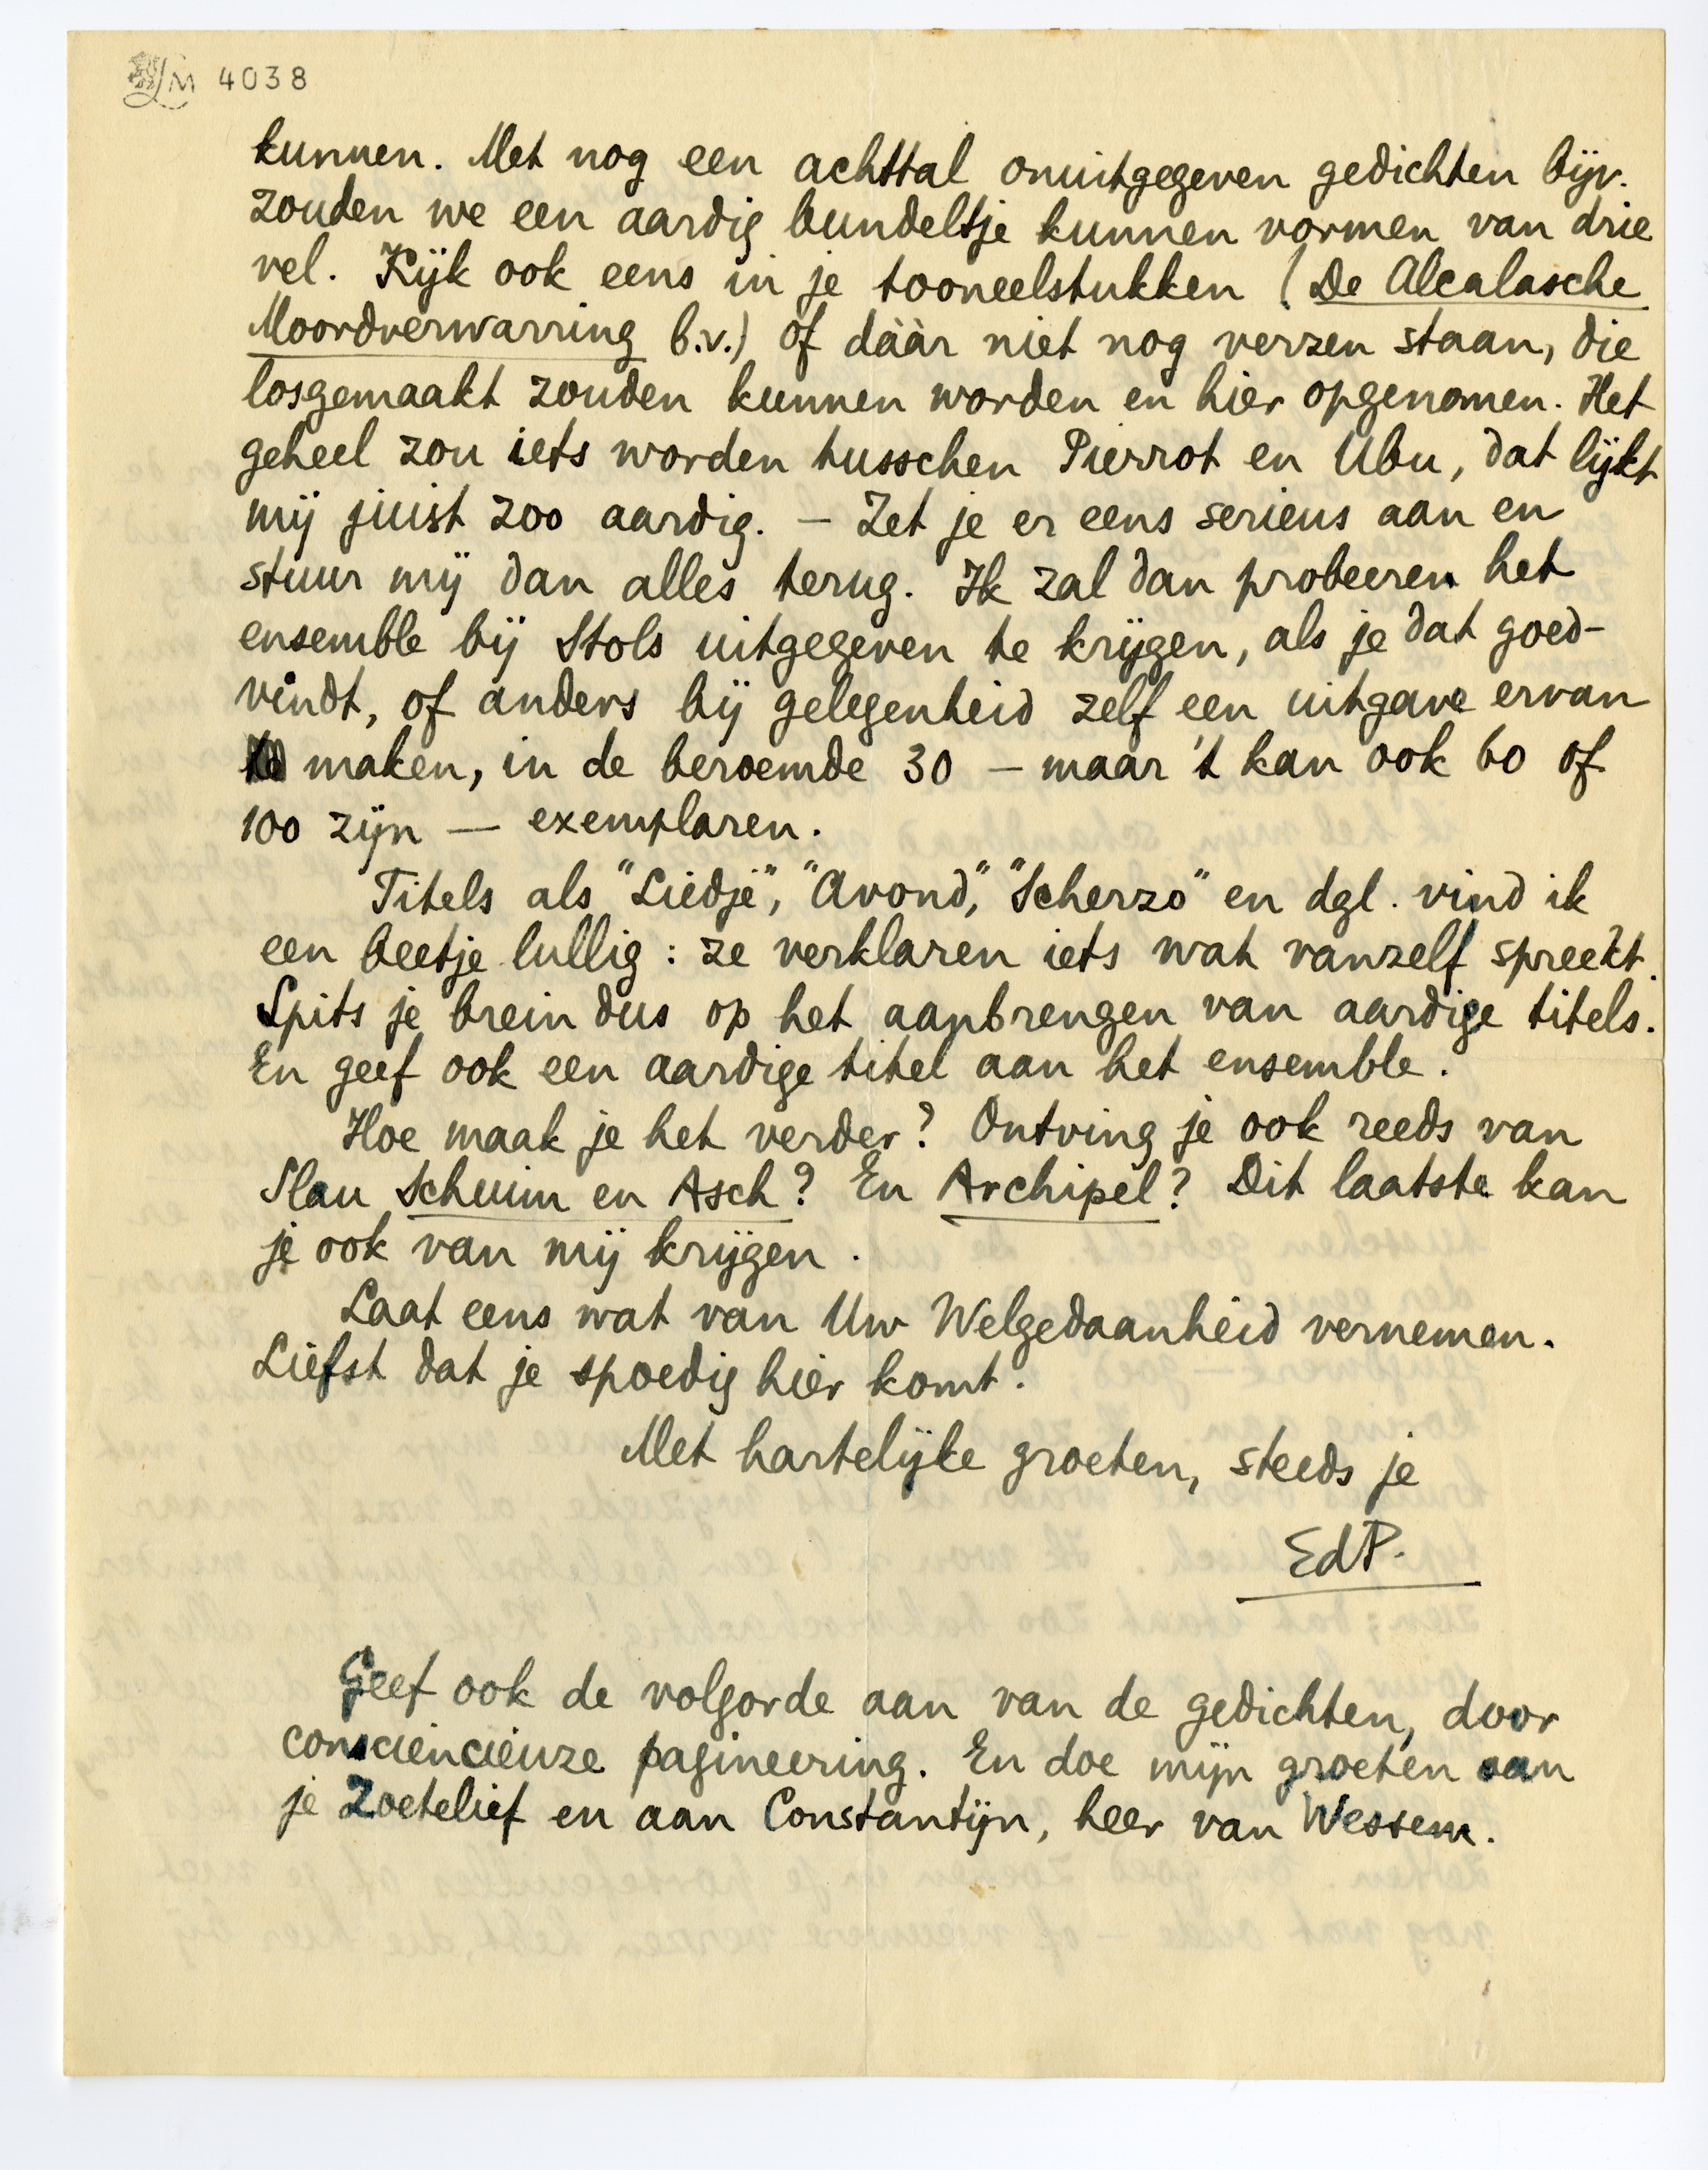 LM 4038
kunnen. Met nog een achttal onuitgegeven gedichten bijv.
zouden we een aardig bundeltje kunnen vormen van drie
vel. Kijk ook eens in je tooneelstukken (De Alcalasche
Moordverwarring b.v.) of dààr niet nog verzen staan, die
losgemaakt zouden kunnen worden en hier opgenomen. Het
geheel zou iets worden tusschen Pierrot en Ubu, dat lijkt
mij juist zoo aardig. – Zet je er eens serieus aan en
stuur mij dan alles terug. Ik zal dan probeeren het
ensemble bij Stols uitgegeven te krijgen, als je dat goed-
vindt, of anders bij gelegenheid zelf een uitgave ervan
maken, in de beroemde 30 – maar 't kan ook 60 of
100 zijn — exemplaren.
Titels als "Liedje", "Avond", "Scherzo" en dgl. vind ik
een beetje lullig: ze verklaren iets wat vanzelf spreekt.
Spits je brein dus op het aanbrengen van aardige titels.
En geef ook een aardige titel aan het ensemble.
Hoe maak je het verder? Ontving je ook reeds van
Slau Schuim en Asch? En Archipel? Dit laatste kan
je ook van mij krijgen.
Laat eens wat van Uw Welgedaanheid vernemen.
Liefst dat je spoedig hier komt.
Met hartelijke groeten, steeds je
EdP.
Geef ook de volgorde aan van de gedichten, door
consciencieuze pagineering. En doe mijn groeten aan
je Zoetelief en aan Constantijn, heer van Wessem.